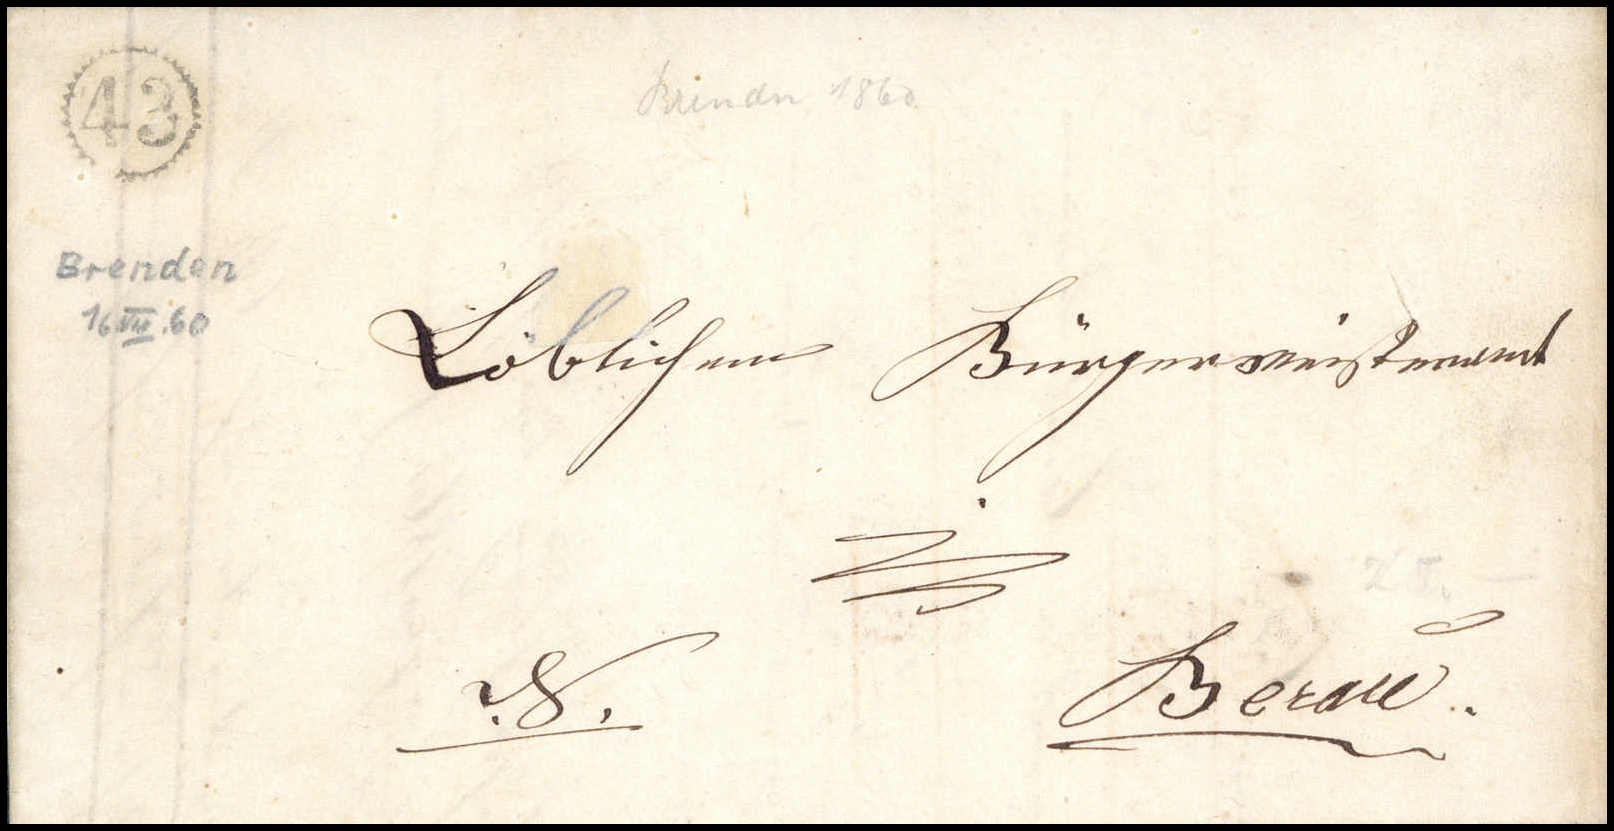 43
Brendn 1860
Brenden
16.VII.60
Löblichem Bürgermeisteramt
25.—
Berau.